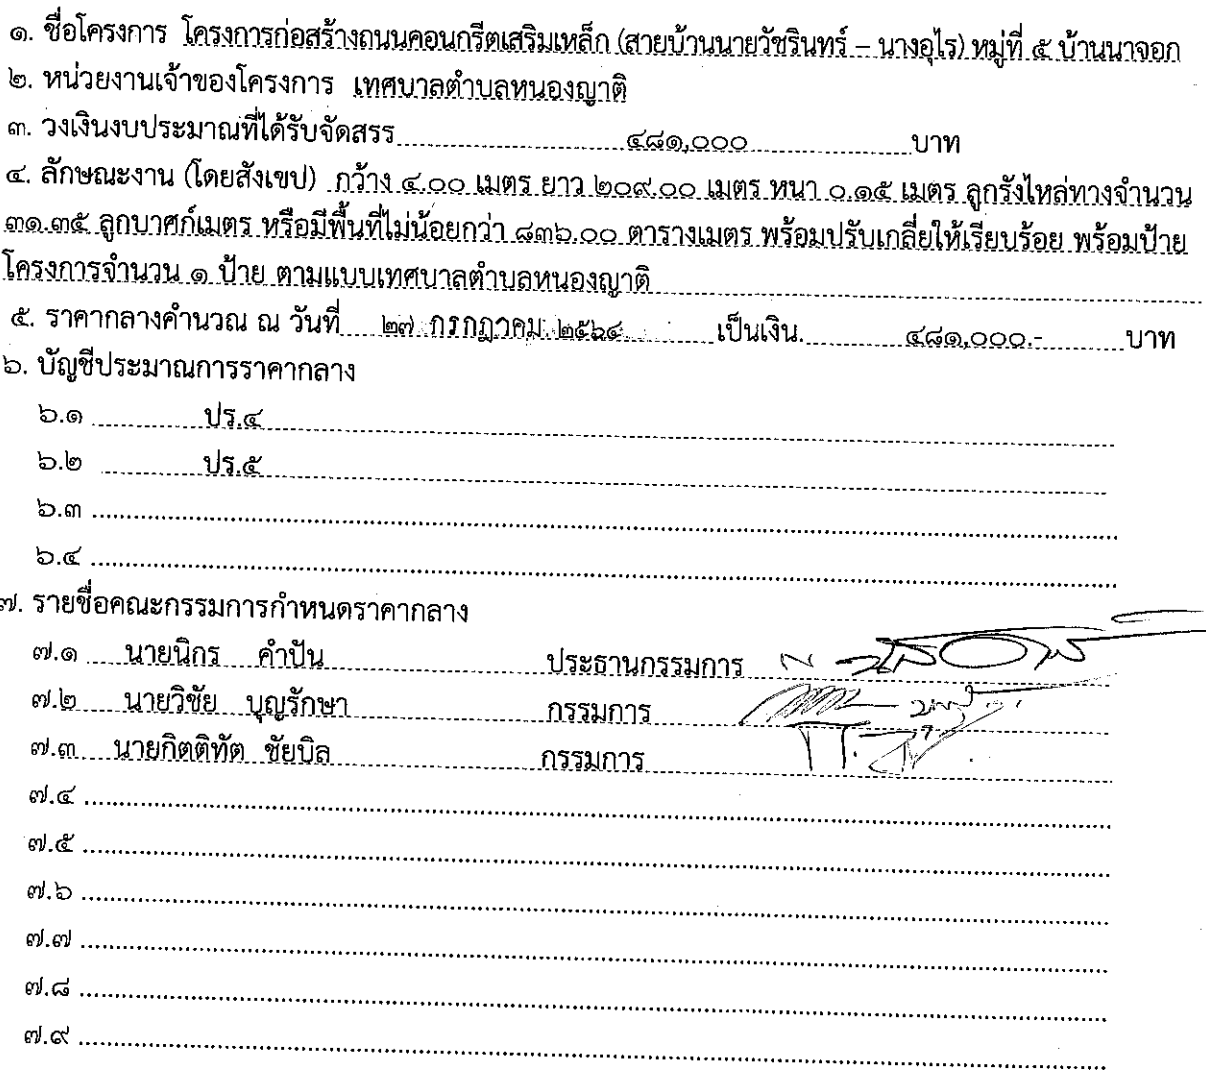 ๑. ชื่อโครงการ โครงการก่อสร้างถนนคอนกรีตเสริมเหล็ก (สายบ้านนายวัชรินทร์ – นางอุไร) หมู่ที่ ๕ บ้านนาจอก
๒. หน่วยงานเจ้าของโครงการ เทศบาลตำบลหนองญาติ
๓. วงเงินงบประมาณที่ได้รับจัดสรร ๔๘๑,๐๐๐ บาท
๔. ลักษณะงาน (โดยสังเขป) กว้าง ๔.๐๐ เมตร ยาว ๒๐๙.๐๐ เมตร หนา ๐.๑๕ เมตร ลูกรังไหล่ทางจำนวน
๓๑.๓๕ ลูกบาศก์เมตร หรือมีพื้นที่ไม่น้อยกว่า ๘๓๖.๐๐ ตารางเมตร พร้อมปรับเกลี่ยให้เรียบร้อย พร้อมป้าย
โครงการจำนวน ๑ ป้าย ตามแบบเทศบาลตำบลหนองญาติ
๕. ราคากลางคำนวณ ณ วันที่ ๒๗ กรกฎาคม ๒๕๖๔ เป็นเงิน. ๔๘๑,๐๐๐.- บาท
๖. บัญชีประมาณการราคากลาง
๖.๑ ปร.๔
๖.๒ ปร.๕
๖.๓
๖.๔
๗. รายชื่อคณะกรรมการกำหนดราคากลาง
๗.๑ นายนิกร คำปัน ประธานกรรมการ
๗.๒ นายวิชัย บุญรักษา กรรมการ
๗.๓ นายกิตติทัต ชัยบิล กรรมการ
๗.๔
๗.๕
๗.๖
๗.๗
๗.๘
๗.๙